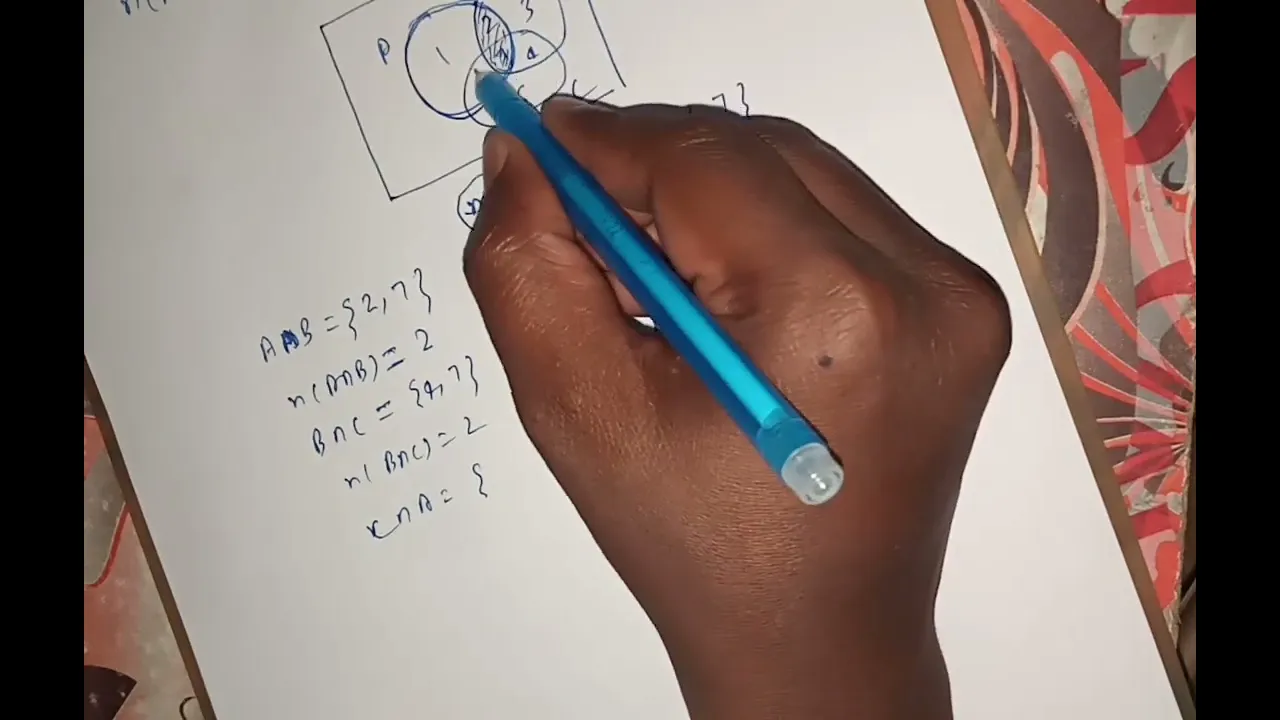 P
1
3
4
7}
A∩B = {2,7}
n(A∩B) = 2
B∩C = {4,7}
n(B∩C) = 2
C∩A = {